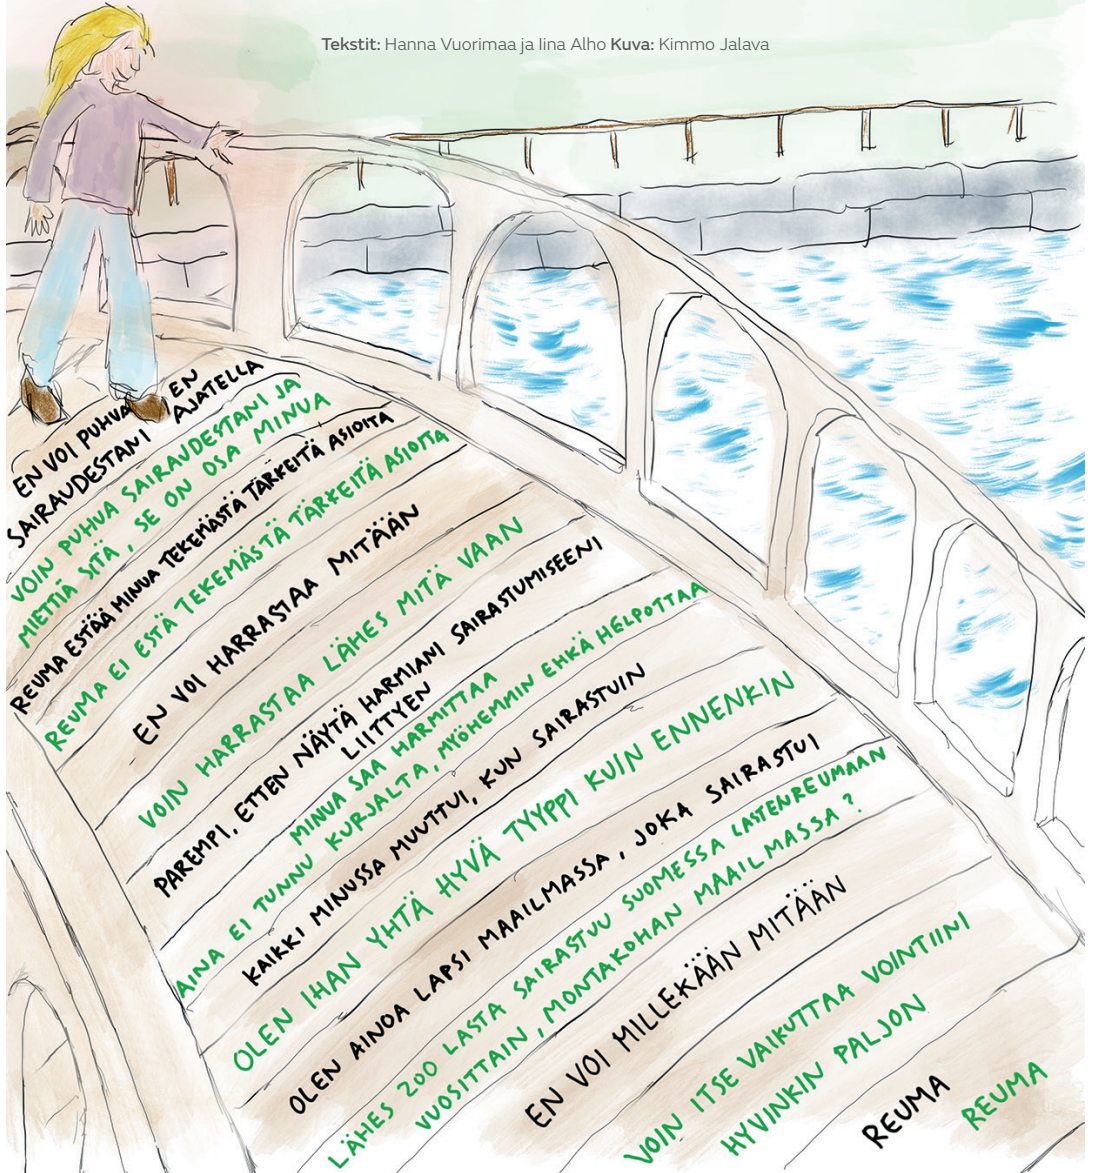 Tekstit: Hanna Vuorimaa ja Iina Alho Kuva: Kimmo Jalava
EN VOI PUHUA
SAIRAUDESTANI EN
AJATELLA
VOIN PUHUA SAIRAUDESTANI JA
MIETTIÄ SITÄ, SE ON OSA MINUA
REUMA ESTÄÄ MINUA TEKEMÄSTÄ TÄRKEITÄ ASIOITA
REUMA EI ESTÄ TEKEMÄSTÄ TÄRKEITÄ ASIOITA
EN VOI HARRASTAA MITÄÄN
VOIN HARRASTAA LÄHES MITÄ VAAN
PAREMPI, ETTEN NÄYTÄ HARMIANI SAIRASTUMISEENI
LIITTYEN
MINUA SAA HARMITTAA
AINA EI TUNNU KURJALTA, MYÖHEMMIN EHKÄ HELPOTTAA
KAIKKI MINUSSA MUUTTUI, KUN SAIRASTUIN
OLEN IHAN YHTÄ HYVÄ TYYPPI KUIN ENNENKIN
OLEN AINOA LAPSI MAAILMASSA, JOKA SAIRASTUI
LÄHES 200 LASTA SAIRASTUU SUOMESSA LASTENREUMAAN
VUOSITTAIN, MONTAKOHAN MAAILMASSA?
EN VOI MILLEKÄÄN MITÄÄN
VOIN ITSE VAIKUTTAA VOINTIINI
HYVINKIN PALJON
REUMA
REUMA